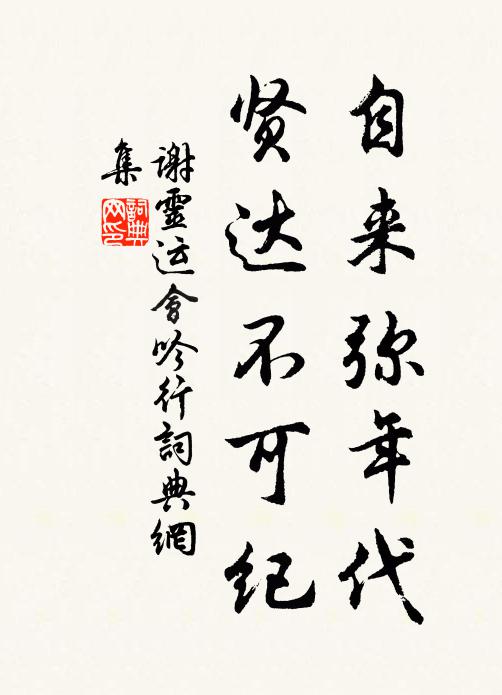 自来弥年代
贤达不可纪
谢靈运會吟行詞典網
集
詞典
网印